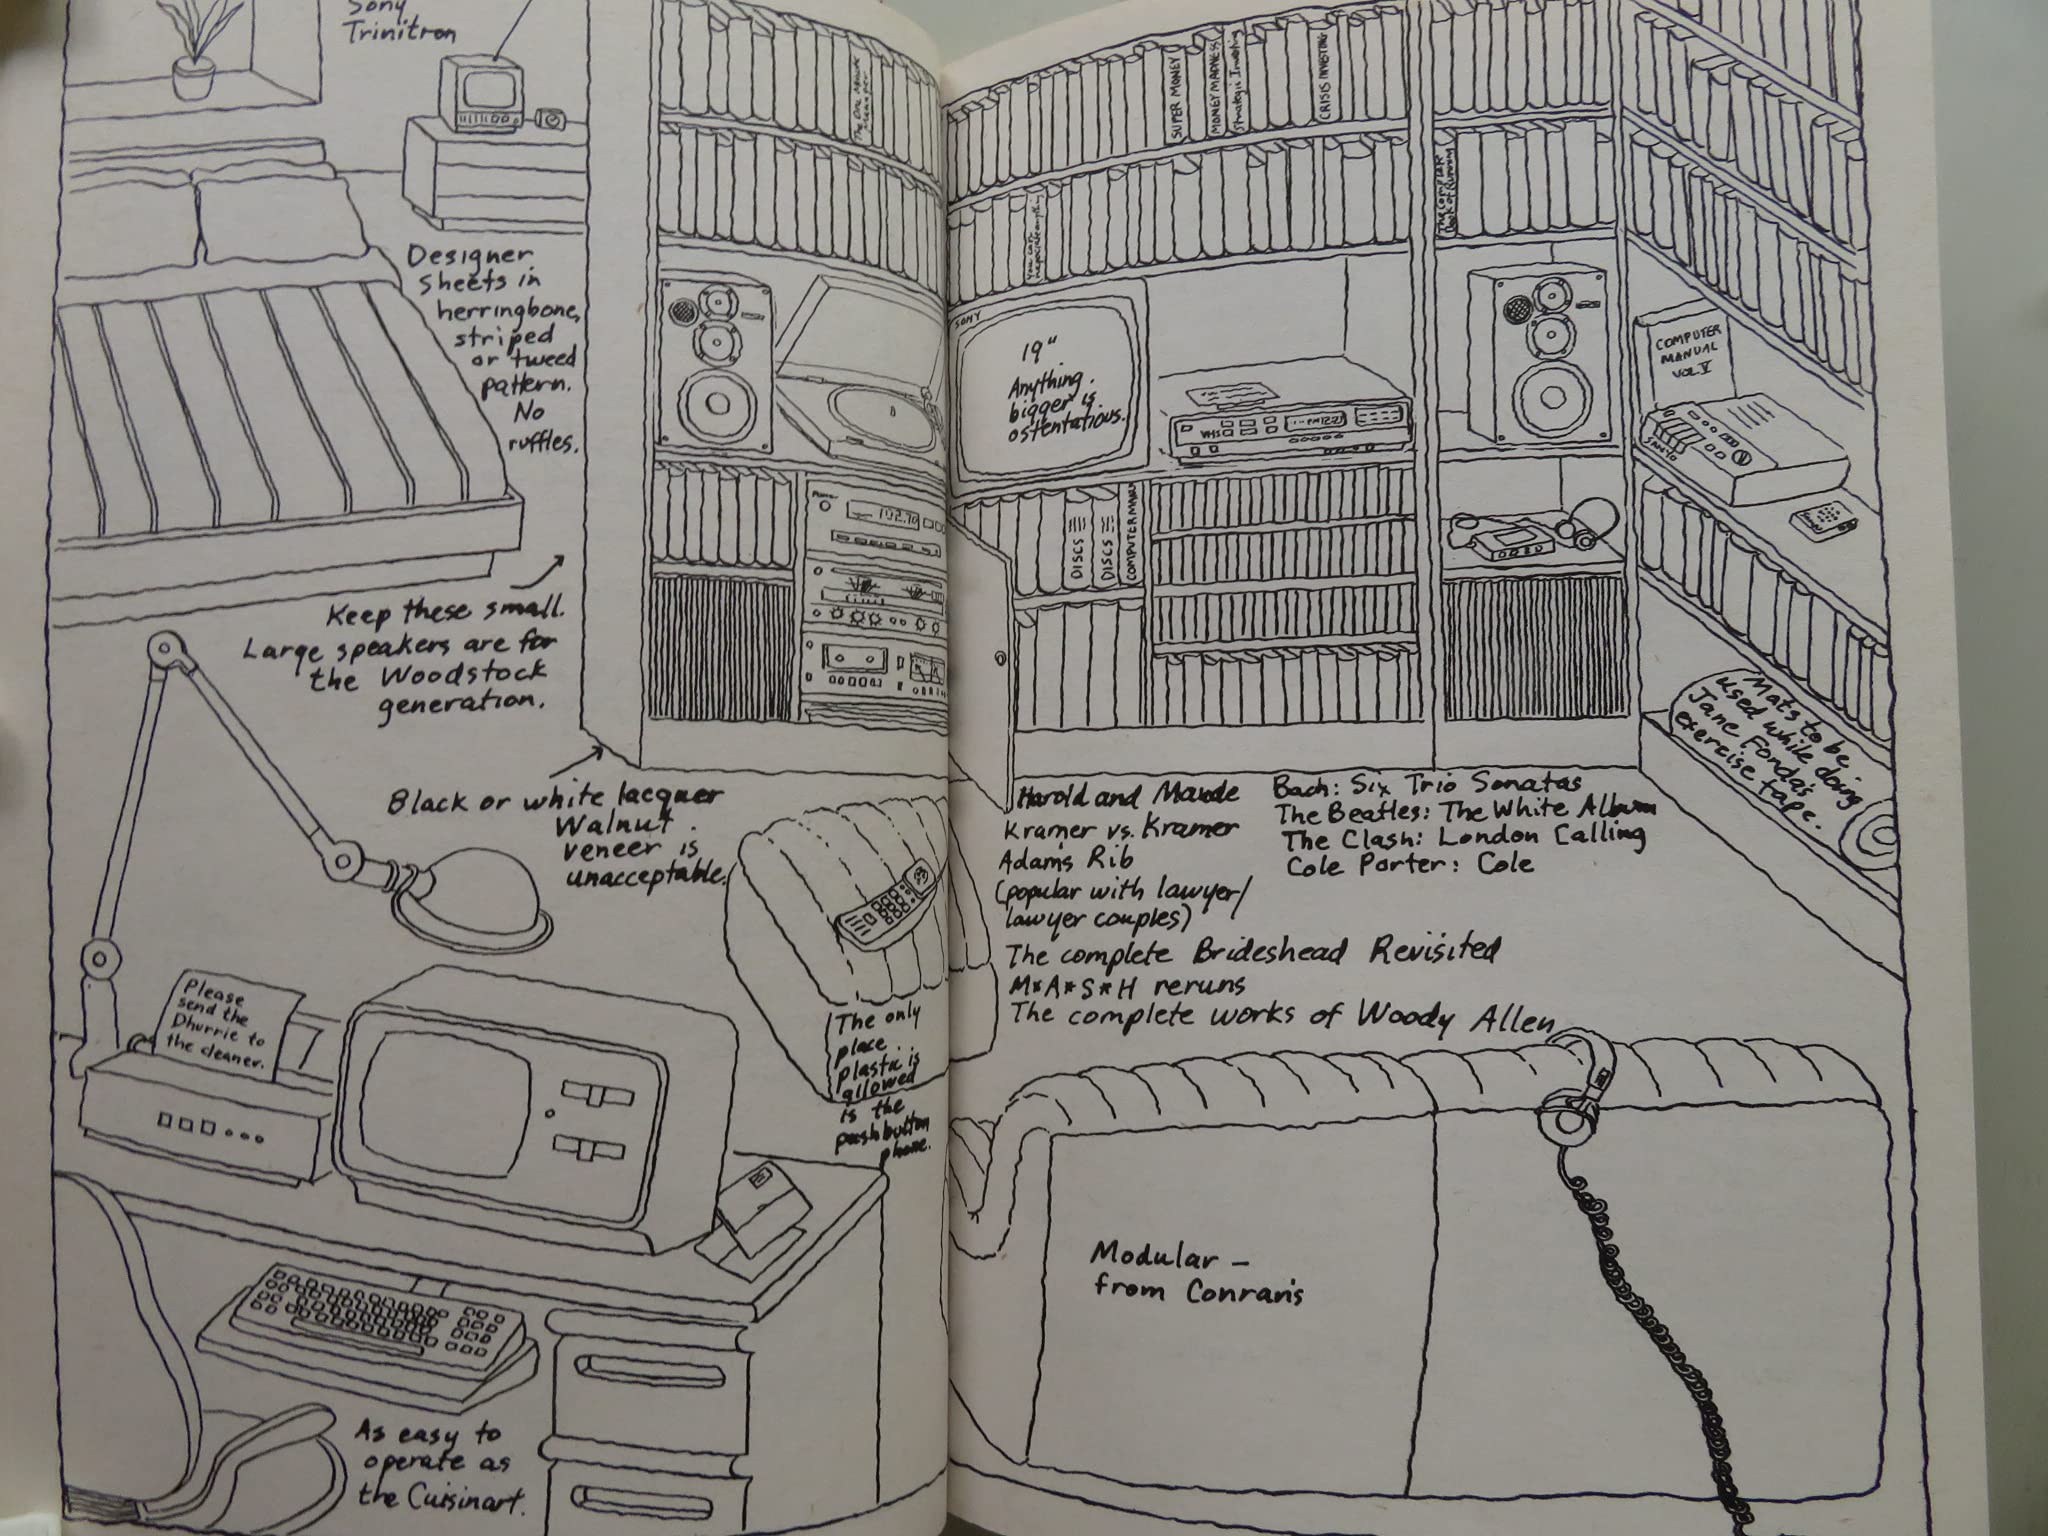 Sony
Trinitron
Designer
sheets in
herringbone,
striped
or tweed
pattern.
No
ruffles.
Keep these small.
Large speakers are for
the Woodstock
generation.
Black or white lacquer
Walnut
veneer is
unacceptable.
Please
send the
Dhurrie to
the cleaner.
The only
place
plastic is
allowed
is the
pushbutton
phone.
As easy to
operate as
the Cuisinart.
The One Minute
Manager
POWER
102.70
SUPER MONEY
MONEY MADNESS
Strategic Investing
CRISIS INVESTING
You can
negotiate anything
The Complete
Book of Running
SONY
19"
Anything
bigger is
ostentatious.
VHS
COMPUTER
MANUAL
VOL. V
SANYO
DISCS
DISCS
COMPUTER MANUAL
Mats to be
used while doing
Jane Fonda's
exercise tape.
Harold and Maude
Kramer vs. Kramer
Adam's Rib
(popular with lawyer/
lawyer couples)
The complete Brideshead Revisited
M*A*S*H reruns
The complete works of Woody Allen
Bach: Six Trio Sonatas
The Beatles: The White Album
The Clash: London Calling
Cole Porter: Cole
Modular —
from Conran's